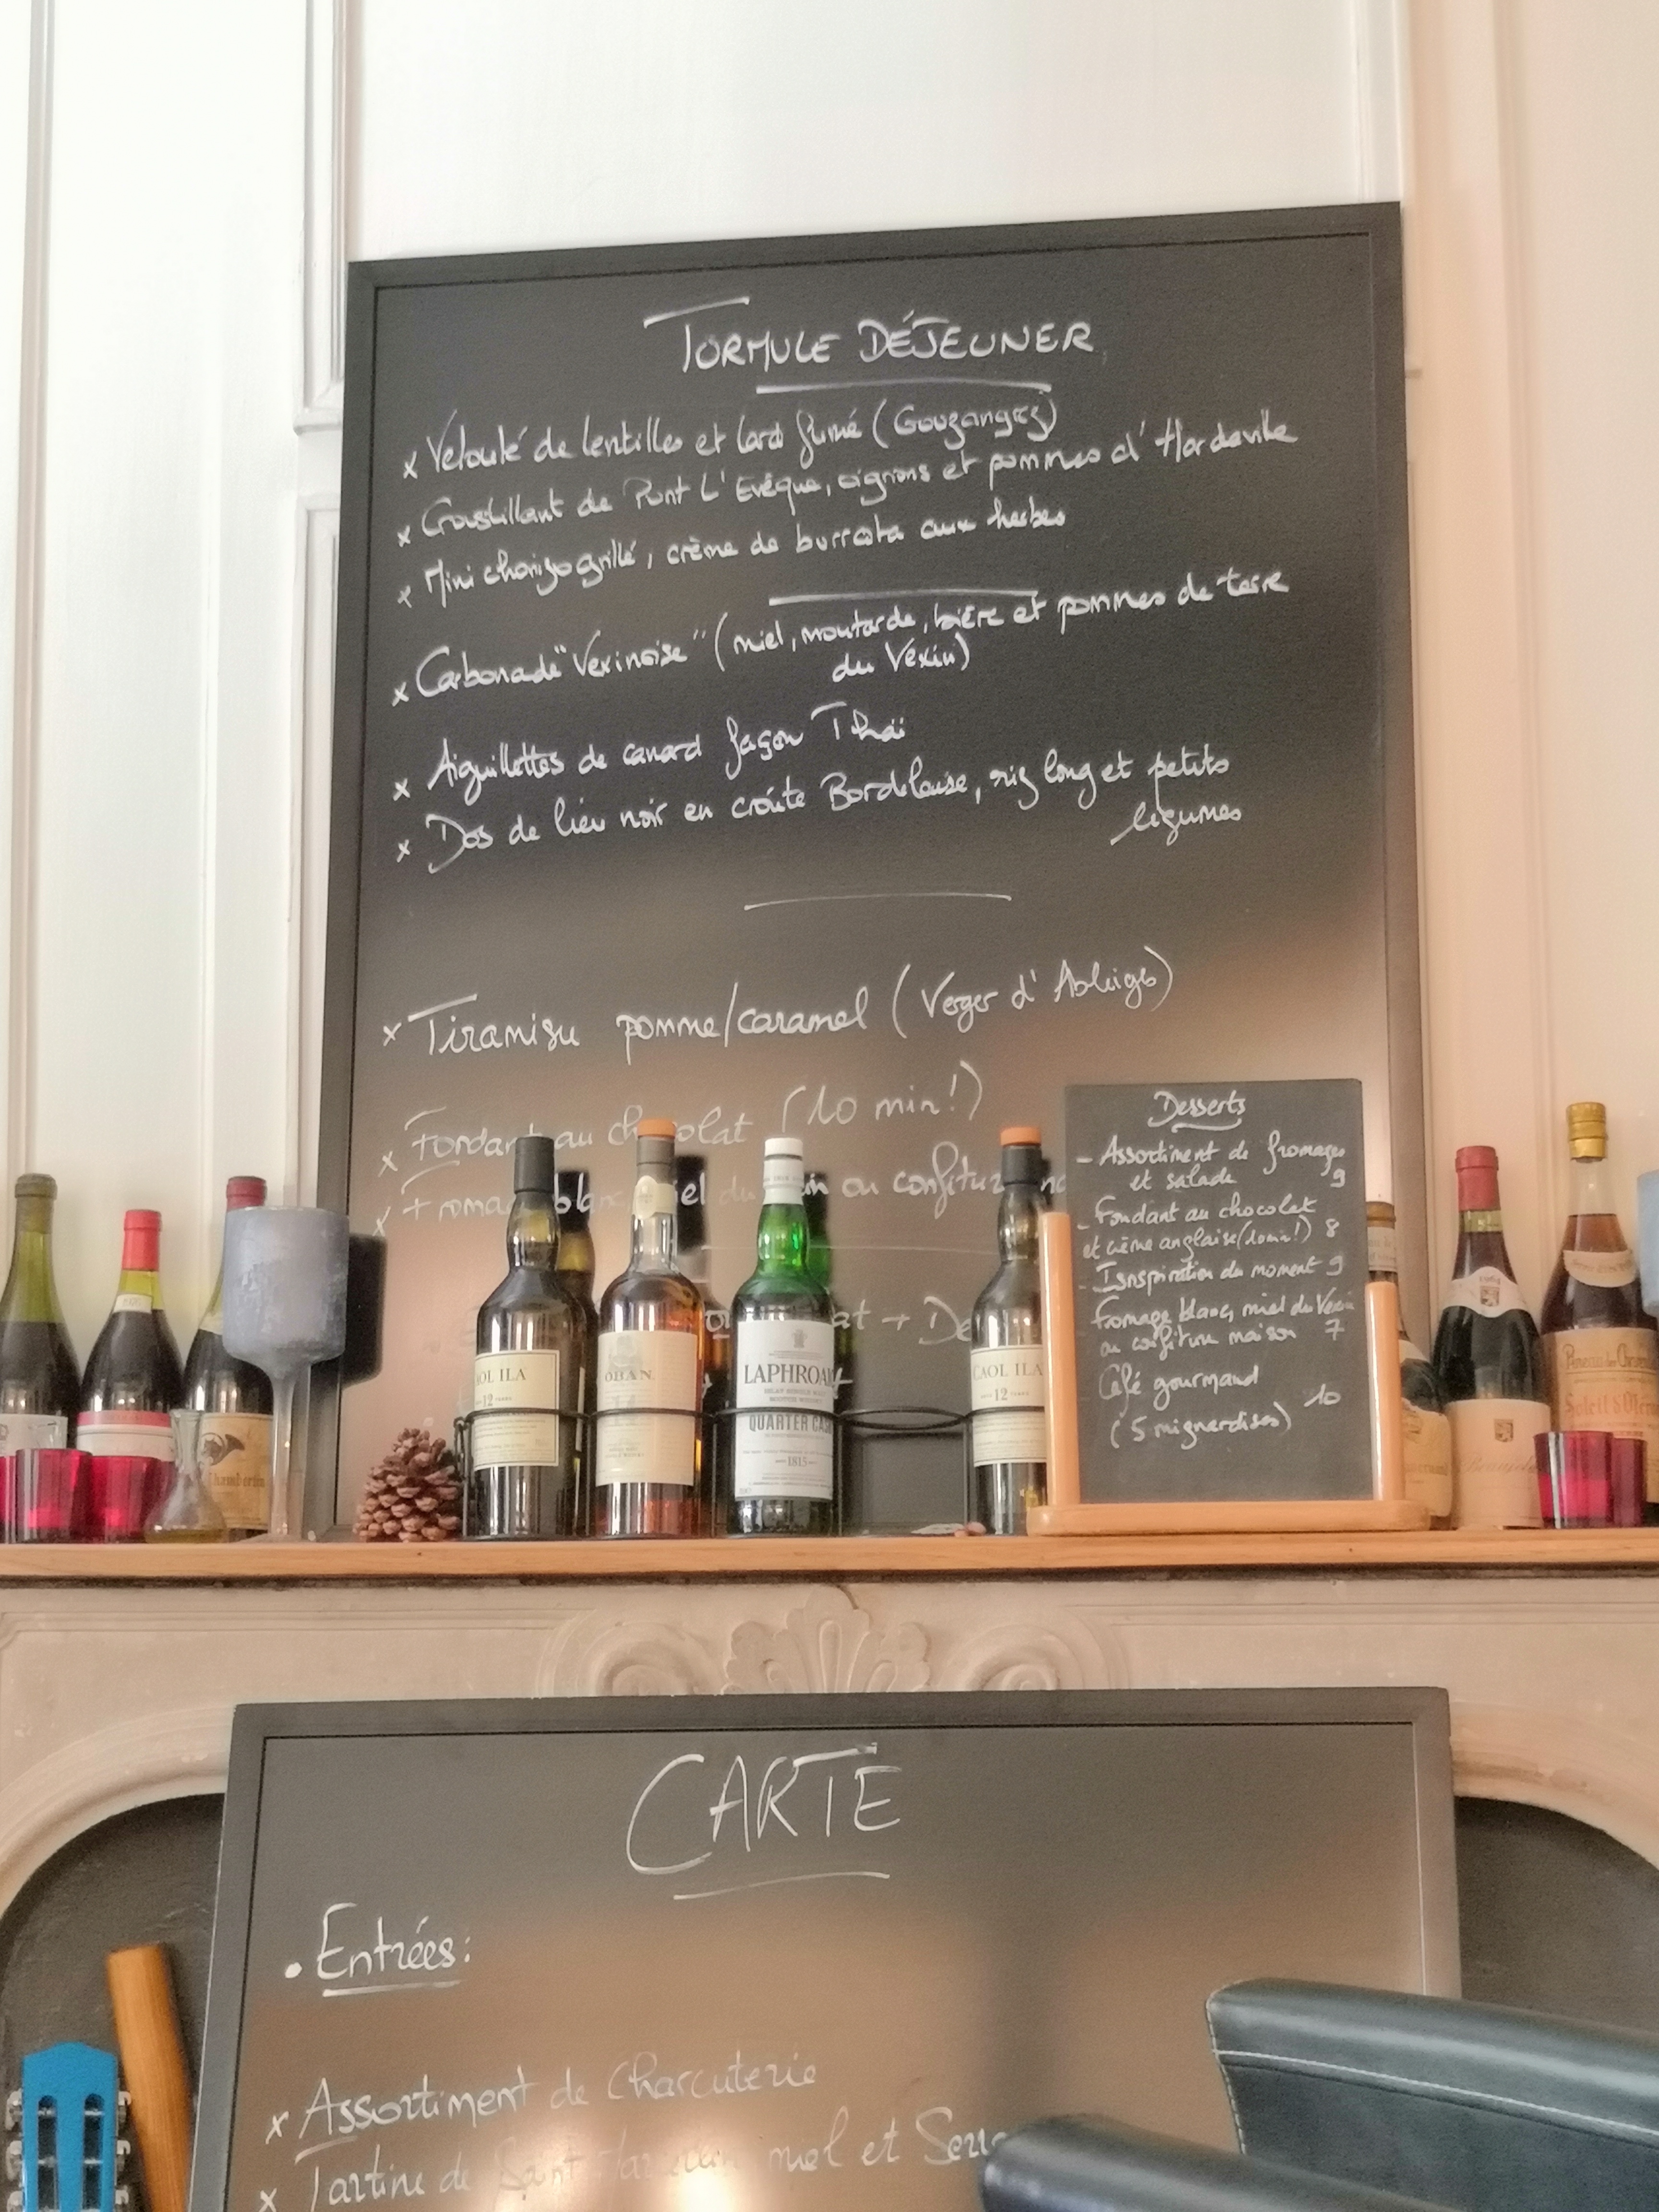 FORMULE DÉJEUNER
x Velouté de lentilles et lard fumé (Gouzangrez)
x Croustillant de Pont L'Evêque, oignons et pommes d'Hardeville
x Mini chorizo grillé, crème de burrata aux herbes
x Carbonade "Vexinoise" (miel, moutarde, bière et pommes de terre
du Vexin)
x Aiguillettes de canard façon Thaï
x Dos de lieu noir en croûte Bordelaise, riz long et petits
légumes
x Tiramisu pomme/caramel (Verger d'Ableiges)
x Fondant au chocolat (10 min!)
x Fromage blanc, miel du ou confiture
at → De
CAOL ILA
12 YEARS
OBAN
LAPHROAIG
QUARTER CASK
1815
CAOL ILA
12
Desserts
- Assortiment de fromages
et salade 9
- Fondant au chocolat
et crème anglaise (10 min!) 8
- Isnspiration du moment 9
Fromage blanc, miel du Vexin
ou confiture maison 7
Café gourmand
10
(5 mignardises)
Chambertin
CARTE
• Entrées:
x Assortiment de Charcuterie
x Tartine de Saint miel et